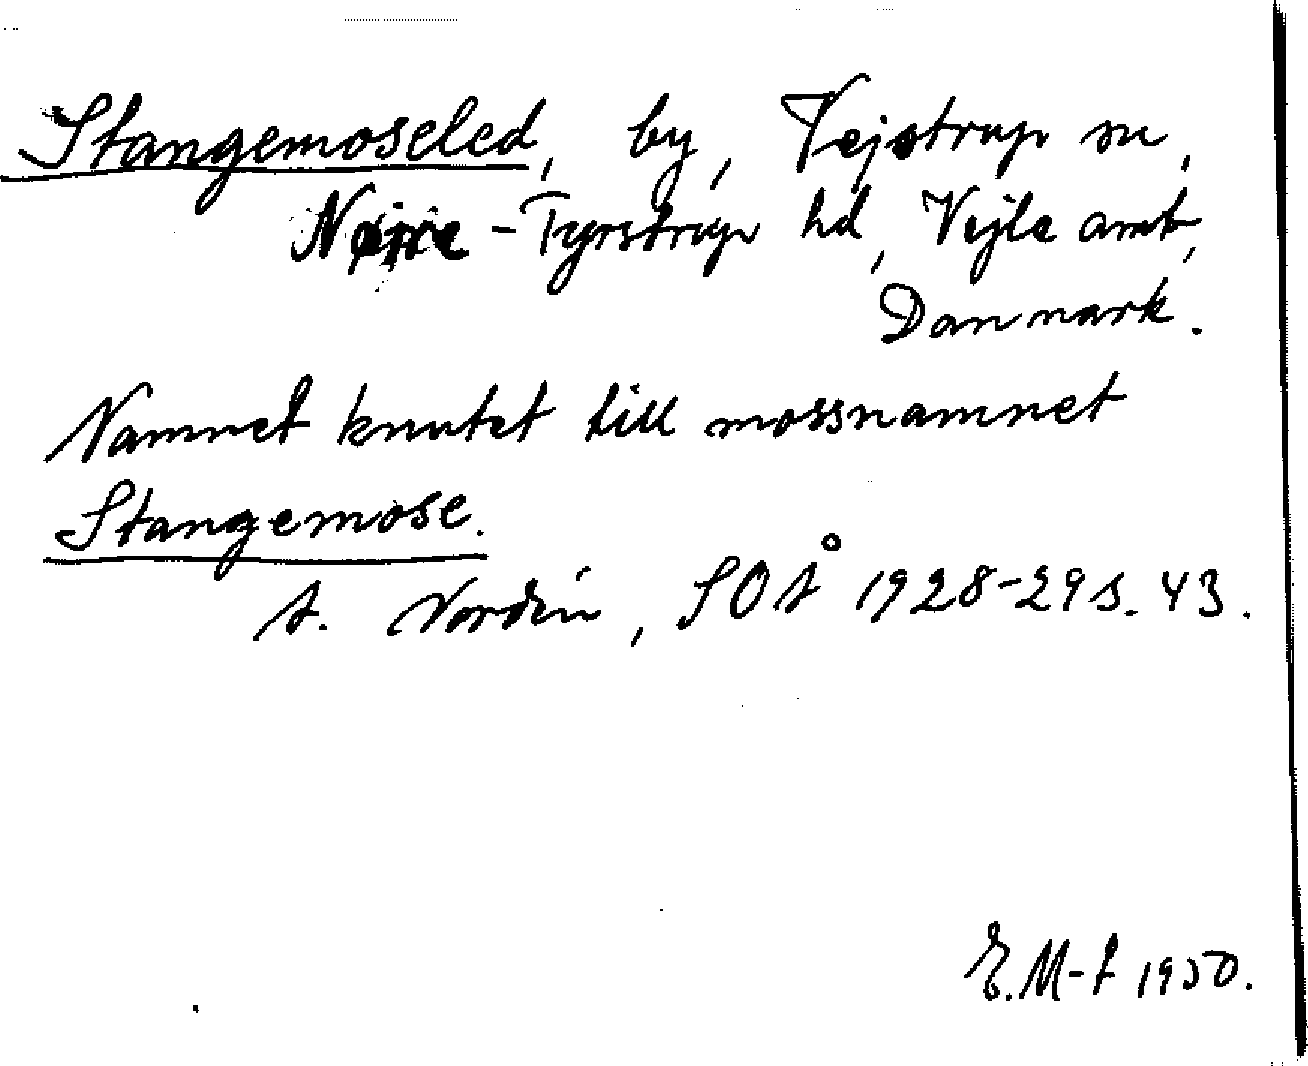 Stangemoseled, by, Vejstrup sn,
Nørre-Tyrstrup hd, Vejle amt,
Danmark.
Namnet knutet till mossnamnet
Stangemose.
A. Nordén, SOÅ 1928-29 s. 43.
E. M-t 1950.